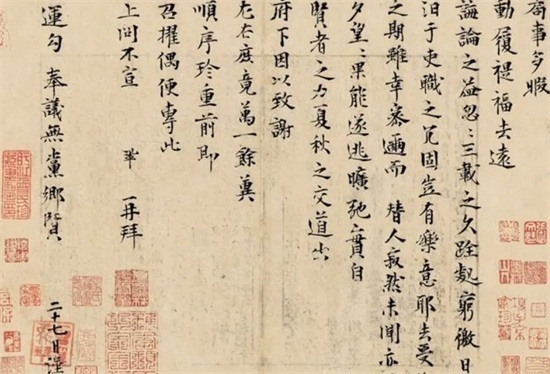 局事多暇
動履禔福去遠
誨論之益忽〻三載之久跧處窮徼日
汨于吏職之冗固豈有樂意耶去受
之期雖幸密邇而 替人寂然未聞亦
夕望〻果能遂逃曠弛實自
賢者之力夏秋之交道出
府下因以致謝
左右庶竟萬一餘冀
順序珍重前即
召擢偶便專此
上問不宣 鞏 再拜
運勾 奉議無黨鄉賢
二十七日謹